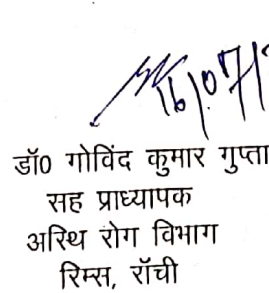 16/07/
डॉ0 गोविंद कुमार गुप्ता
सह प्राध्यापक
अस्थि रोग विभाग
रिम्स, रॉची